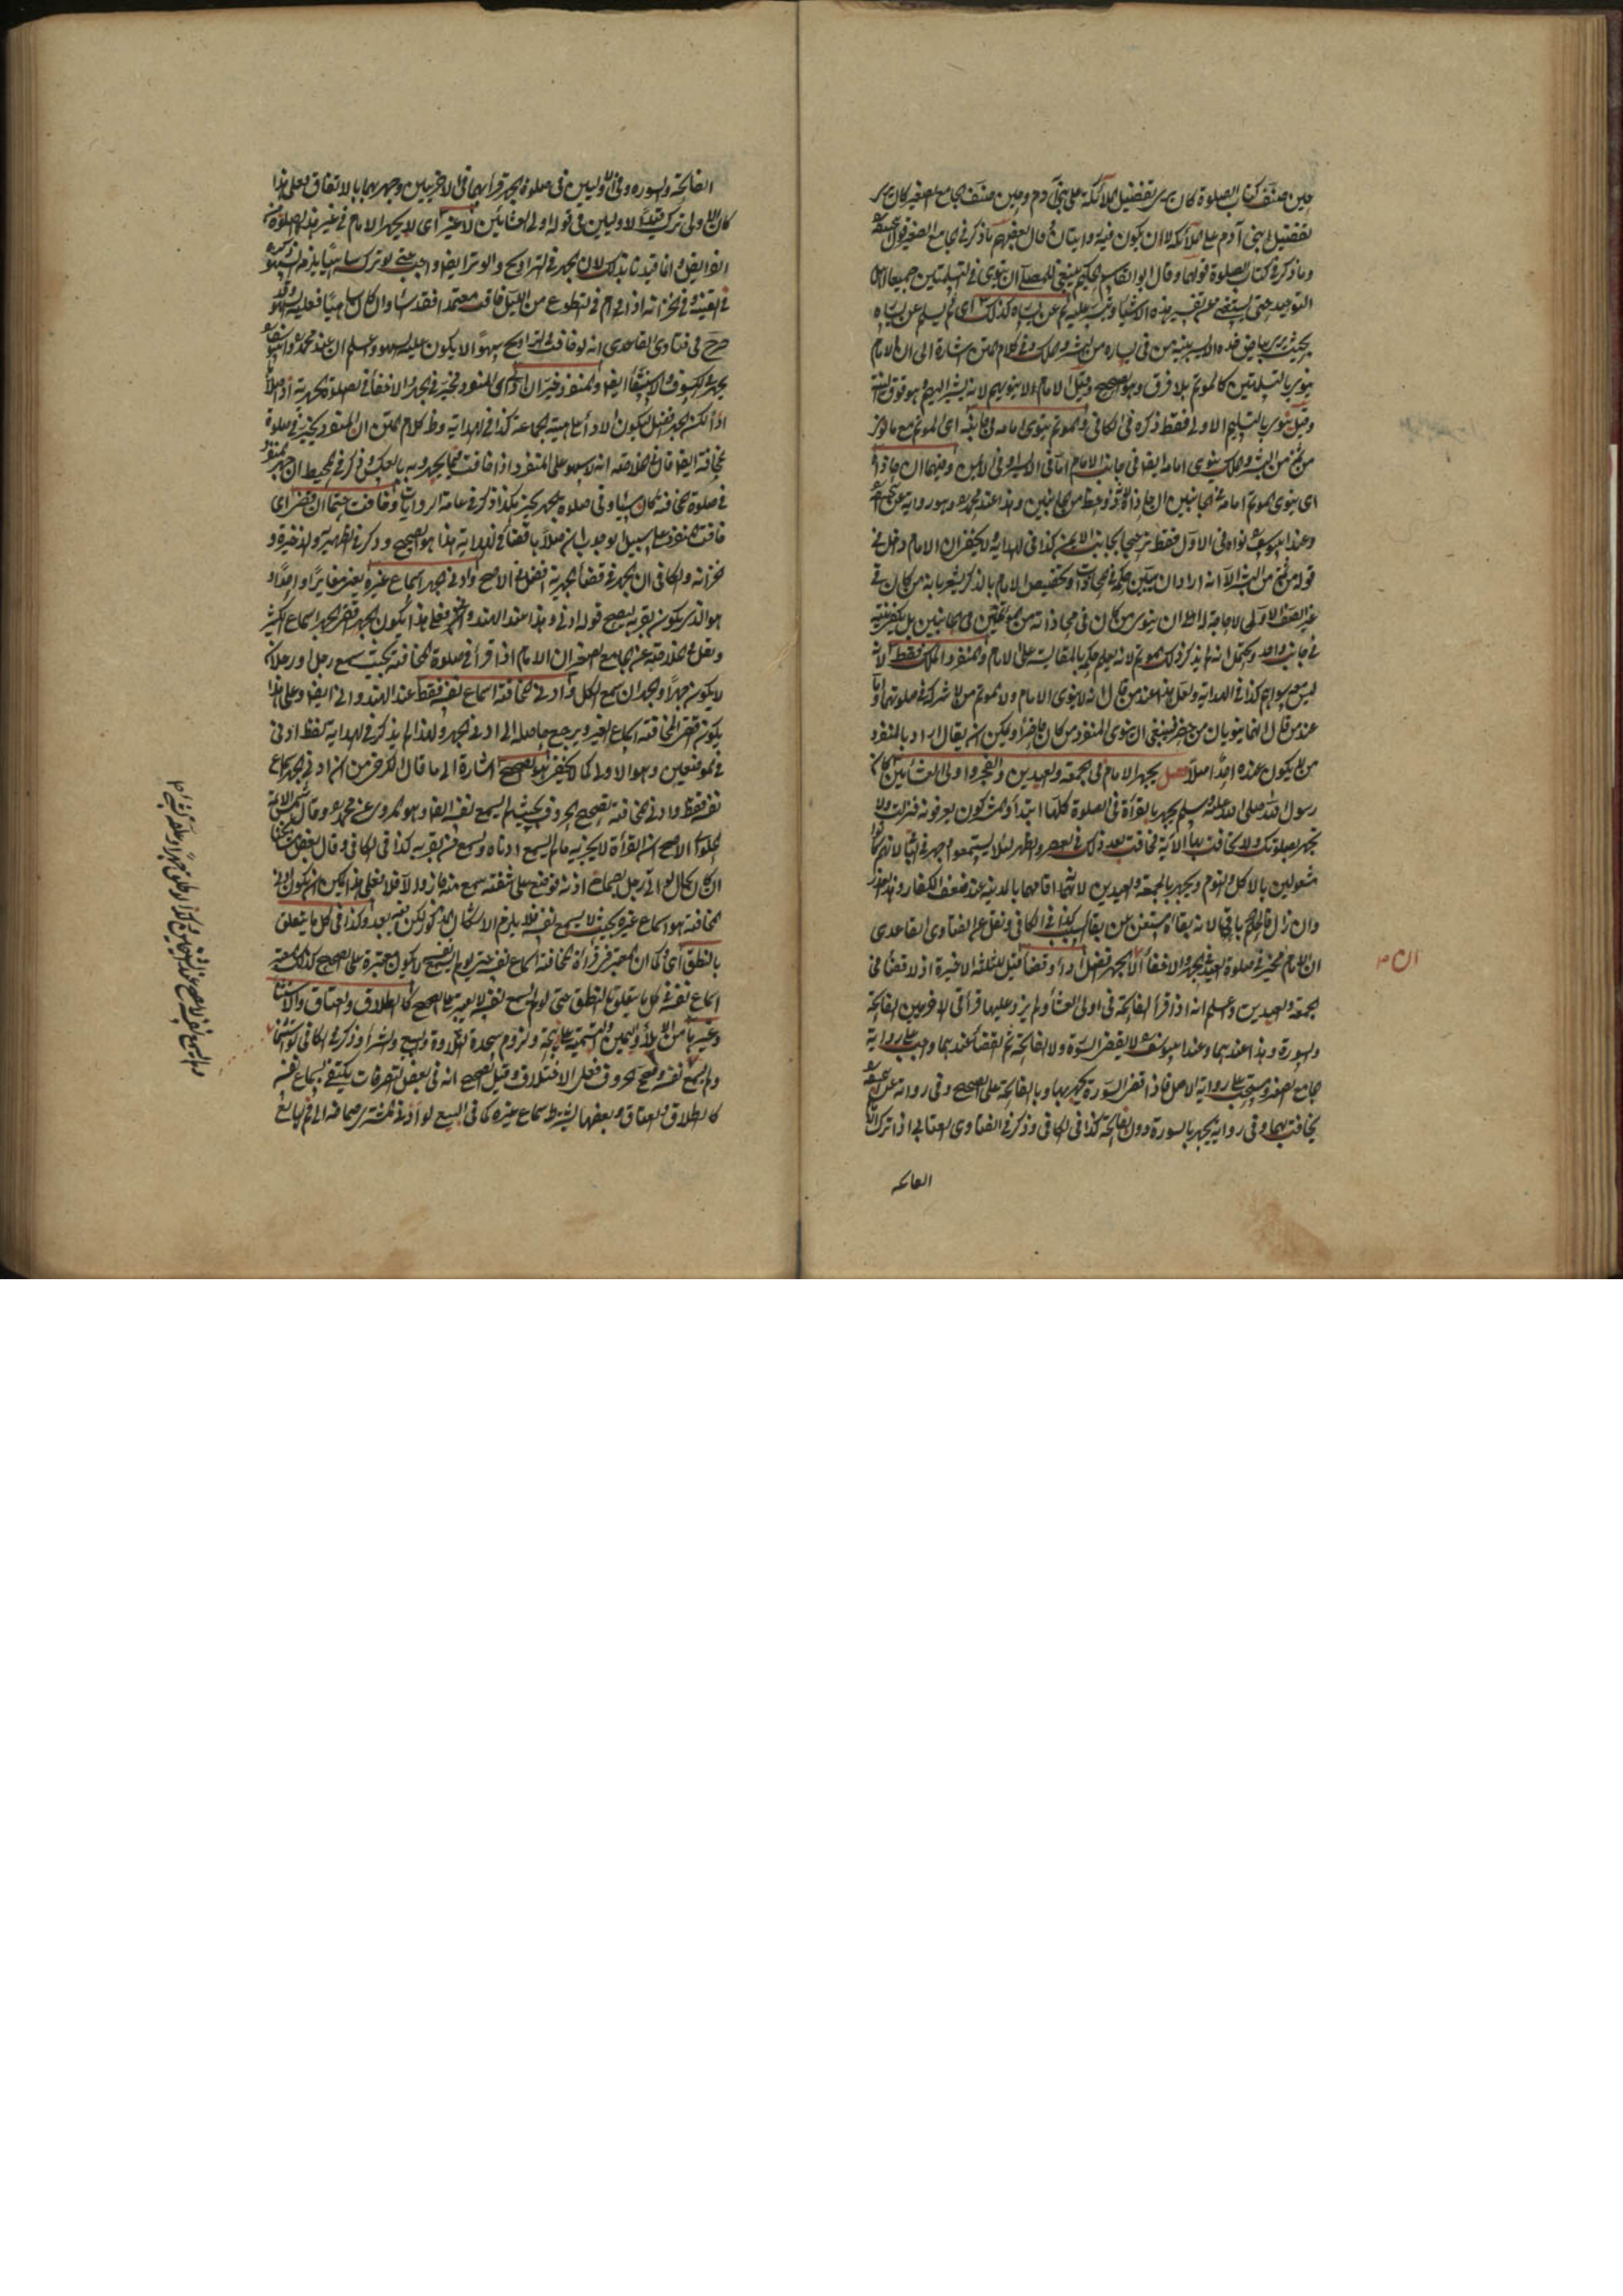 حين صنف كتاب الصلوة كان يرى تفضيل الملائكة على بني آدم وحين صنف الجامع الصغير كان يرى
تفضيل بني آدم على الملائكة الا ان يكون فيه روايتان وقال بعضهم ما ذكر في الجامع الصغير قول
وما ذكر في كتاب الصلوة قولهما وقال ابو القاسم الحكيم ينبغي للمصلي ان ينوي في التسليمتين جميع اهل
التوحيد حتى يستغني عن تفسير هذه الاشياء ثم عن يساره كذلك اي ثم يسلم عن يساره
بحيث يرى بياض خده الايسر بنية من في يساره من البشر والملك وفي كلام المتن اشارة الى ان الامام
ينوي بالتسليمتين كالموتم بلا فرق وهو الصحيح وقيل الامام لا ينويهم لانه يشير اليهم وهو فوق النية
وقيل ينوي بالتسليم الاولى فقط ذكره في الكافي والموتم ينوي امامه في جانبه اي الموتم مع ما نوى
من ثم من البشر والملك ينوي امامه ايضا في جانب الامام اما في الايسر او في الايمن وفيهما ان حاذاه
اي ينوي الموتم امامه في الجانبين ان حاذاه لانه ذو حظ من الجانبين وهذا عند محمد وهو رواية عن
وعند ابي يوسف نواه في الاول فقط ترجيحا لجانب الايمن كذا في الهداية ولا يخفى ان الامام دخل في
قوله من ثم من البشر الا انه اراد ان يبين حكمه في المحاذاة وتخصيص الامام بالذكر يشعر بانه من كان في
غير الصف الاول لا حاجة له الى ان ينوي من كان في محاذاته من المؤتمين في الجانبين بل يكفي نيته
في جانب واحد ويحتمل انه لم يذكر ذلك الموتم لانه يعلم حكمه بالمقايسة على الامام والمنفرد الملك فقط لانه
ليس معه سواهم كذا في الهداية ولعل هذا عند من قال انه لا ينوي الامام ولا الموتم من لا شركة في صلوتهما واما
عند من قال انهما ينويان من حضر فينبغي ان ينوي المنفرد من كان حاضرا ويمكن ان يقال اراد بالمنفرد
من لا يكون عنده احد اصلا فصل يجهر الامام في الجمعة والعيدين والفجر واولى العشائين كان
رسول الله صلى الله عليه وسلم يجهر بالقرأة في الصلوة كلها ابتداء والمشركون يعرفونه فنزلت ولا
تجهر بصلوتك ولا تخافت بها الآية فخافت بعد ذلك في العصر والظهر لئلا يستمعوا وجهر في الباقي لانهم كانوا
مشغولين بالاكل والنوم ويجهر بالجمعة والعيدين لانه اقامهما بالمدينة عند ضعف الكفار وهذا العذر
وان زال فالحكم باق لان بقاءه استغنى عن بقاء السبب كذا في الكافي ونقل عن الفتاوى القاعدي
ان الامام مخير في صلوة العيد بين الجهر والاخفاء الا ان الجهر افضل اداء وقضاء قيل للثلثة الاخيرة اذ لا قضاء في
ان م
الجمعة والعيدين واعلم انه اذا قرأ الفاتحة في اولى العشاء ولم يزد عليها قرأ في الاخريين الفاتحة
والسورة وهذا عندهما وعند ابي يوسف لا يقضي السورة ولا الفاتحة ثم القضاء عندهما واجب على رواية
جامع الصغير ومستحب على رواية الاصل فاذا قضى السورة يجهر بها وبالفاتحة على الصحيح وفي رواية عن
يخافت بهما وفي رواية يجهر بالسورة دون الفاتحة كذا في الكافي وذكر في الفتاوى العتابي اذا ترك
الفاتحة
الفاتحة والسورة في الاوليين في صلوة الجهر قرأهما في الاخريين وجهر بهما بالاتفاق فعلى هذا
كان الاولى ترك قيد الاوليين في قوله اولى العشائين لا غير اي لا يجهر الامام في غير هذه الصلوة من
الفرايض وانما قيدنا بذلك لان الجهر في التراويح والوتر ايضا واجب حتى لو تركه ساهيا يلزم السهو
في القنية وفي الخزانة اذا ام في التطوع من الليل فخافت متعمدا فقد اساء وان كان ساهيا فعليه السهو وقد
صرح في فتاوى القاعدي انه لو خافت في التراويح سهوا لا يكون عليه السهو واعلم ان عند محمد وابي يوسف
يجهر في الكسوف والاستسقاء ايضا والمنفرد خير ان ادى اي المنفرد مخير في الجهر والاخفاء في الصلوة الجهرية اداء اصلا
اداء لكن الجهر افضل ليكون الاداء على هيئة الجماعة كذا في الهداية وظاهر كلام المتن ان المنفرد يخير في صلوة
المخافتة ايضا قال في الخلاصة انه لا سهو على المنفرد اذا خافت فيما يجهر وبه بالعكس وذكر في المحيط ان جهر المنفرد
في صلوة المخافتة كان مسيئا وفي صلوة الجهر يخير هكذا ذكر في عامة الروايات وخافت حتما ان قضى اي
خافت المنفرد على سبيل الوجوب ان صلى باقضاء كذا في الهداية هذا هو الصحيح وذكر في الظهيرية والذخيرة و
الخزانة والكافي ان الجهر في قضاء الجهرية افضل في الاصح وادنى الجهر اسماع غيره يعني مغايرا واحدا و
هو الذي يكون بقربه ليصح قوله ادنى وهذا عند الهندواني فعلى هذا يكون الجهر اقصى الجهر اسماع الكثير
ونقل في الخلاصة عن الجامع الصغير ان الامام اذا قرأ في صلوة المخافتة بحيث سمع رجل او رجلان
لا يكون جهرا والجهر ان يسمع الكل وادنى المخافتة اسماع نفسه فقط عند الهندواني ايضا وعلى هذا
يكون اقصى المخافتة اسماع الغير ويرجع حاصله الى ادنى الجهر ولهذا لم يذكر في الهداية لفظ ادنى
في الموضعين وهو الاولى كما لا يخفى هو الصحيح اشارة الى ما قال الكرخي من ان ادنى الجهر اسماع
نفسه فقط وادنى المخافتة تصحيح الحروف بحيث لم يسمع نفسه ايضا وهو المروي عن محمد وقال شمس الائمة
الحلواني الاصح ان القرأة لا يجزيه مالم يسمع اذناه ويسمع من بقربه كذا في الكافي وقال بعض مشايخنا
ان كان بحال لو اتى رجل بصماخ اذنه فوضع على شفته يسمع منه جاز والا فلا فعلى هذا يمكن ان يكون ادنى
المخافتة هو اسماع غيره بحيث لا يسمع نفسه فلا يلزم الاشكال المذكور لكن فيه بعد وكذا في كل ما يتعلق
بالنطق اي كما ان المعتبر في قرأة المخافتة اسماع نفسه حتى لو لم يسمع لا يكون معتبرة على الصحيح كذلك المعتبر
اسماع نفسه في كل ما يتعلق بالنطق حتى لو لم يسمع نفسه لا يعتبر على الصحيح كالطلاق والعتاق والاستثناء
وغيرها من الايلاء واليمين والتسمية على الذبيحة ولزوم سجدة التلاوة والبيع والشراء وذكر في الكافي لو استثنى
ولم يسمع نفسه وصحح الحروف فعلى الاختلاف وقيل الصحيح انه في بعض التصرفات يكتفى بسماع نفسه
كالطلاق والعتاق وبعضها يشترط سماع غيره كما في البيع لو ادنى المشتري صماخه الى فم البايع